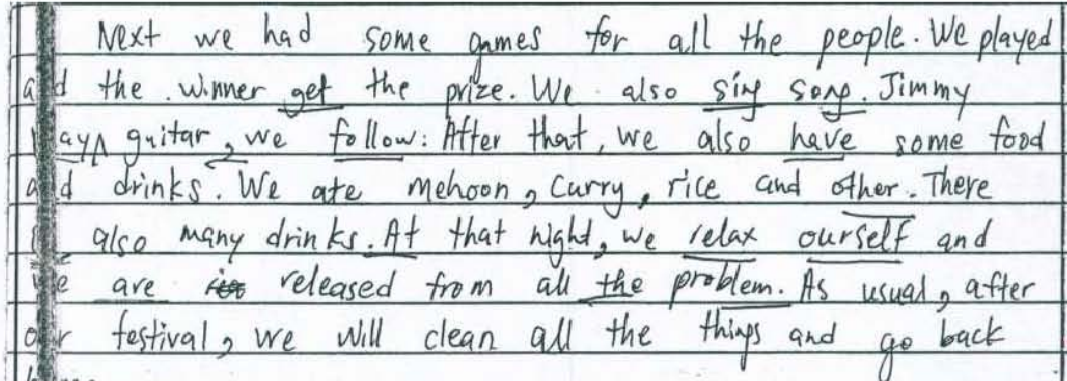 Next we had some games for all the people. We played
and the winner get the prize. We also sing song. Jimmy
play guitar, we follow. After that, we also have some food
and drinks. We ate mehoon, curry, rice and other. There
also many drinks. At that night, we relax ourself and
we are released from all the problem. As usual, after
our festival, we will clean all the things and go back